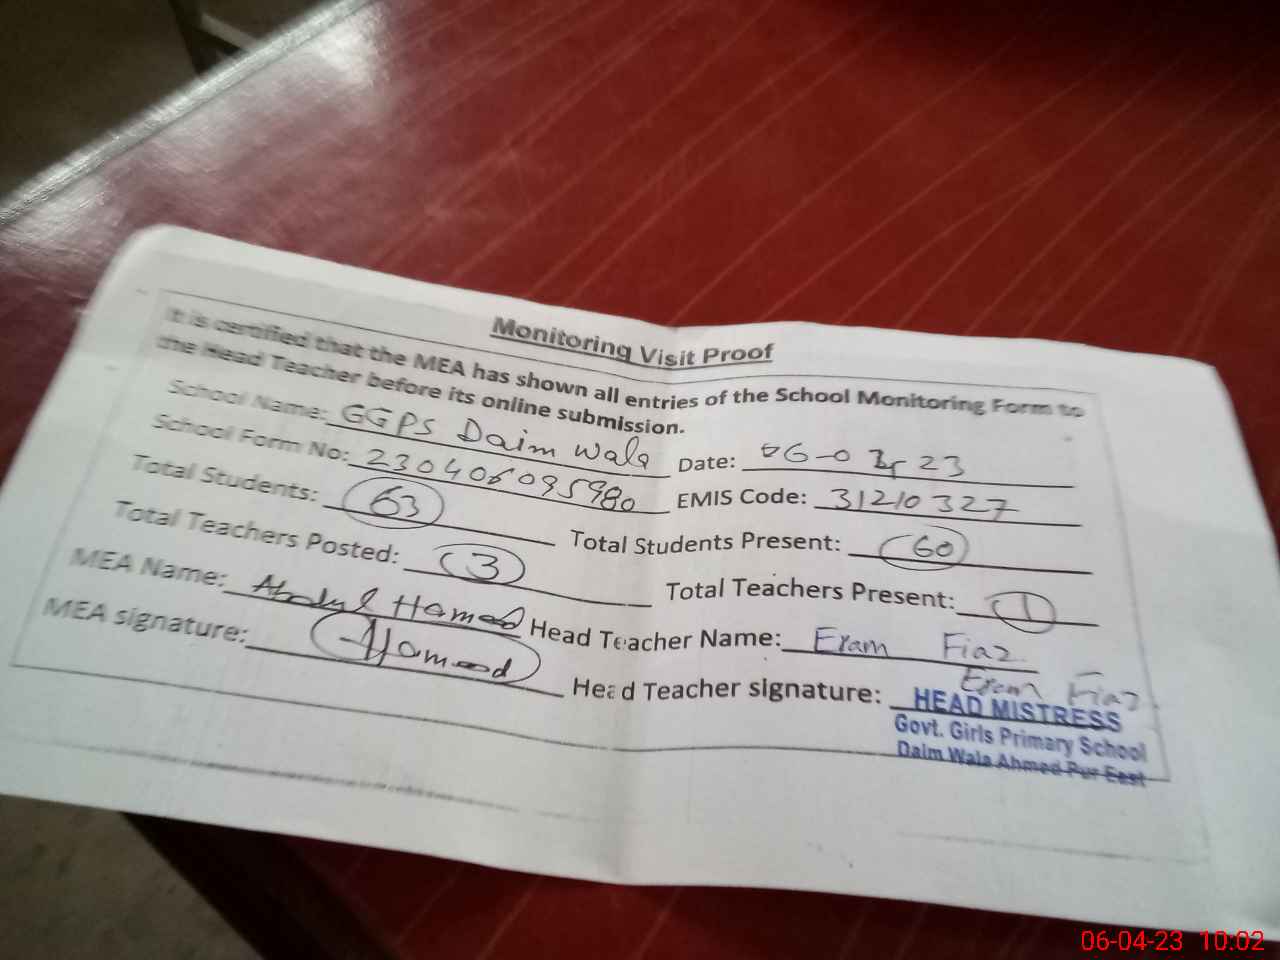 Monitoring Visit Proof
It is certified that the MEA has shown all entries of the School Monitoring Form to
the Head Teacher before its online submission.
School Name: GGPS Daim Wala Date: 06-0 23
School Form No: 230406095980 EMIS Code: 31210327
Total Students: 63 Total Students Present: 60
Total Teachers Posted: 3 Total Teachers Present: 1
MEA Name: Abdul Hameed Head Teacher Name: Eram Fiaz
MEA signature: Hameed Head Teacher signature: Eram Fiaz
HEAD MISTRESS
Govt. Girls Primary School
Daim Wala Ahmed Pur East
06-04-23 10:02